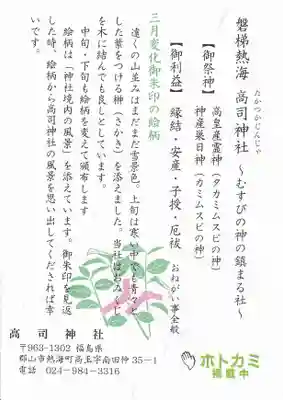 磐梯熱海 高司神社 ～むすびの神の鎮まる社～
たかつかじんじゃ
【御祭神】 高皇産霊神（タカミムスビの神）
神産巣日神（カミムスビの神）
【御利益】 縁結・安産・子授・厄祓 おねがい事全般
三月変化御朱印の絵柄
遠くの山並みはまだまだ雪景色。上旬は寒い中でも青々と
した葉をつける榊（さかき）を添えました。当社はおみくじ
を木に結んでも良しとしています。
中旬・下旬も絵柄を変えて頒布します
絵柄は「神社境内の風景」を添えています。御朱印を見返
した時、絵柄から高司神社の風景を思い出してくだされば幸
いです。
高司神社
〒963-1302 福島県
郡山市熱海町高玉字南田仲35-1
電話 024-984-3316
ホトカミ
掲載中